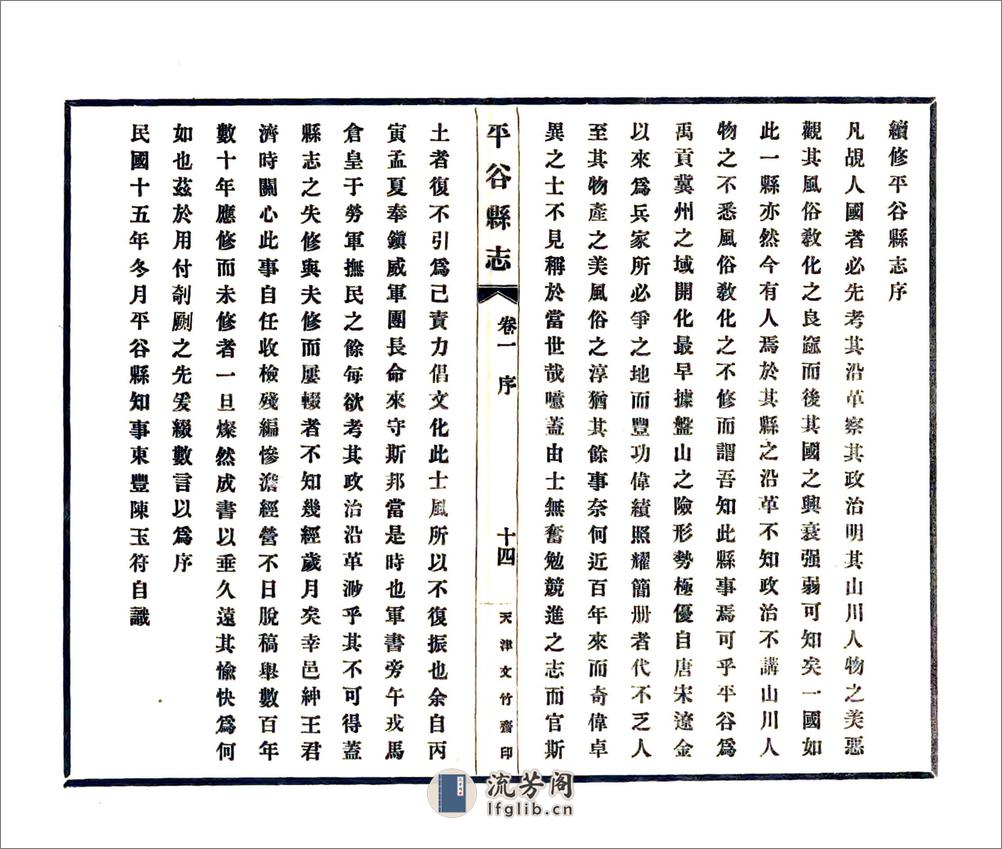 續修平谷縣志序
凡覘人國者必先考其沿革察其政治明其山川人物之美惡
觀其風俗敎化之良窳而後其國之興衰强弱可知矣一國如
此一縣亦然今有人焉於其縣之沿革不知政治不講山川人
物之不悉風俗敎化之不修而謂吾知此縣事焉可乎平谷爲
禹貢冀州之域開化最早據盤山之險形勢極優自唐宋遼金
以來爲兵家所必爭之地而豐功偉績照耀簡册者代不乏人
至其物產之美風俗之淳猶其餘事奈何近百年來而奇偉卓
異之士不見稱於當世哉噫蓋由士無奮勉競進之志而官斯
平谷縣志 卷一 序 十四 天津文竹齋印
土者復不引爲己責力倡文化此士風所以不復振也余自丙
寅孟夏奉鎭威軍團長命來守斯邦當是時也軍書旁午戎馬
倉皇于勞軍撫民之餘每欲考其政治沿革渺乎其不可得蓋
縣志之失修與夫修而屢輟者不知幾經歲月矣幸邑紳王君
濟時關心此事自任收檢殘編慘澹經營不日脫稿舉數百年
數十年應修而未修者一旦燦然成書以垂久遠其愉快爲何
如也茲於用付剞劂之先爰綴數言以爲序
民國十五年冬月平谷縣知事東豐陳玉符自識
流芳阁
lfglib.cn